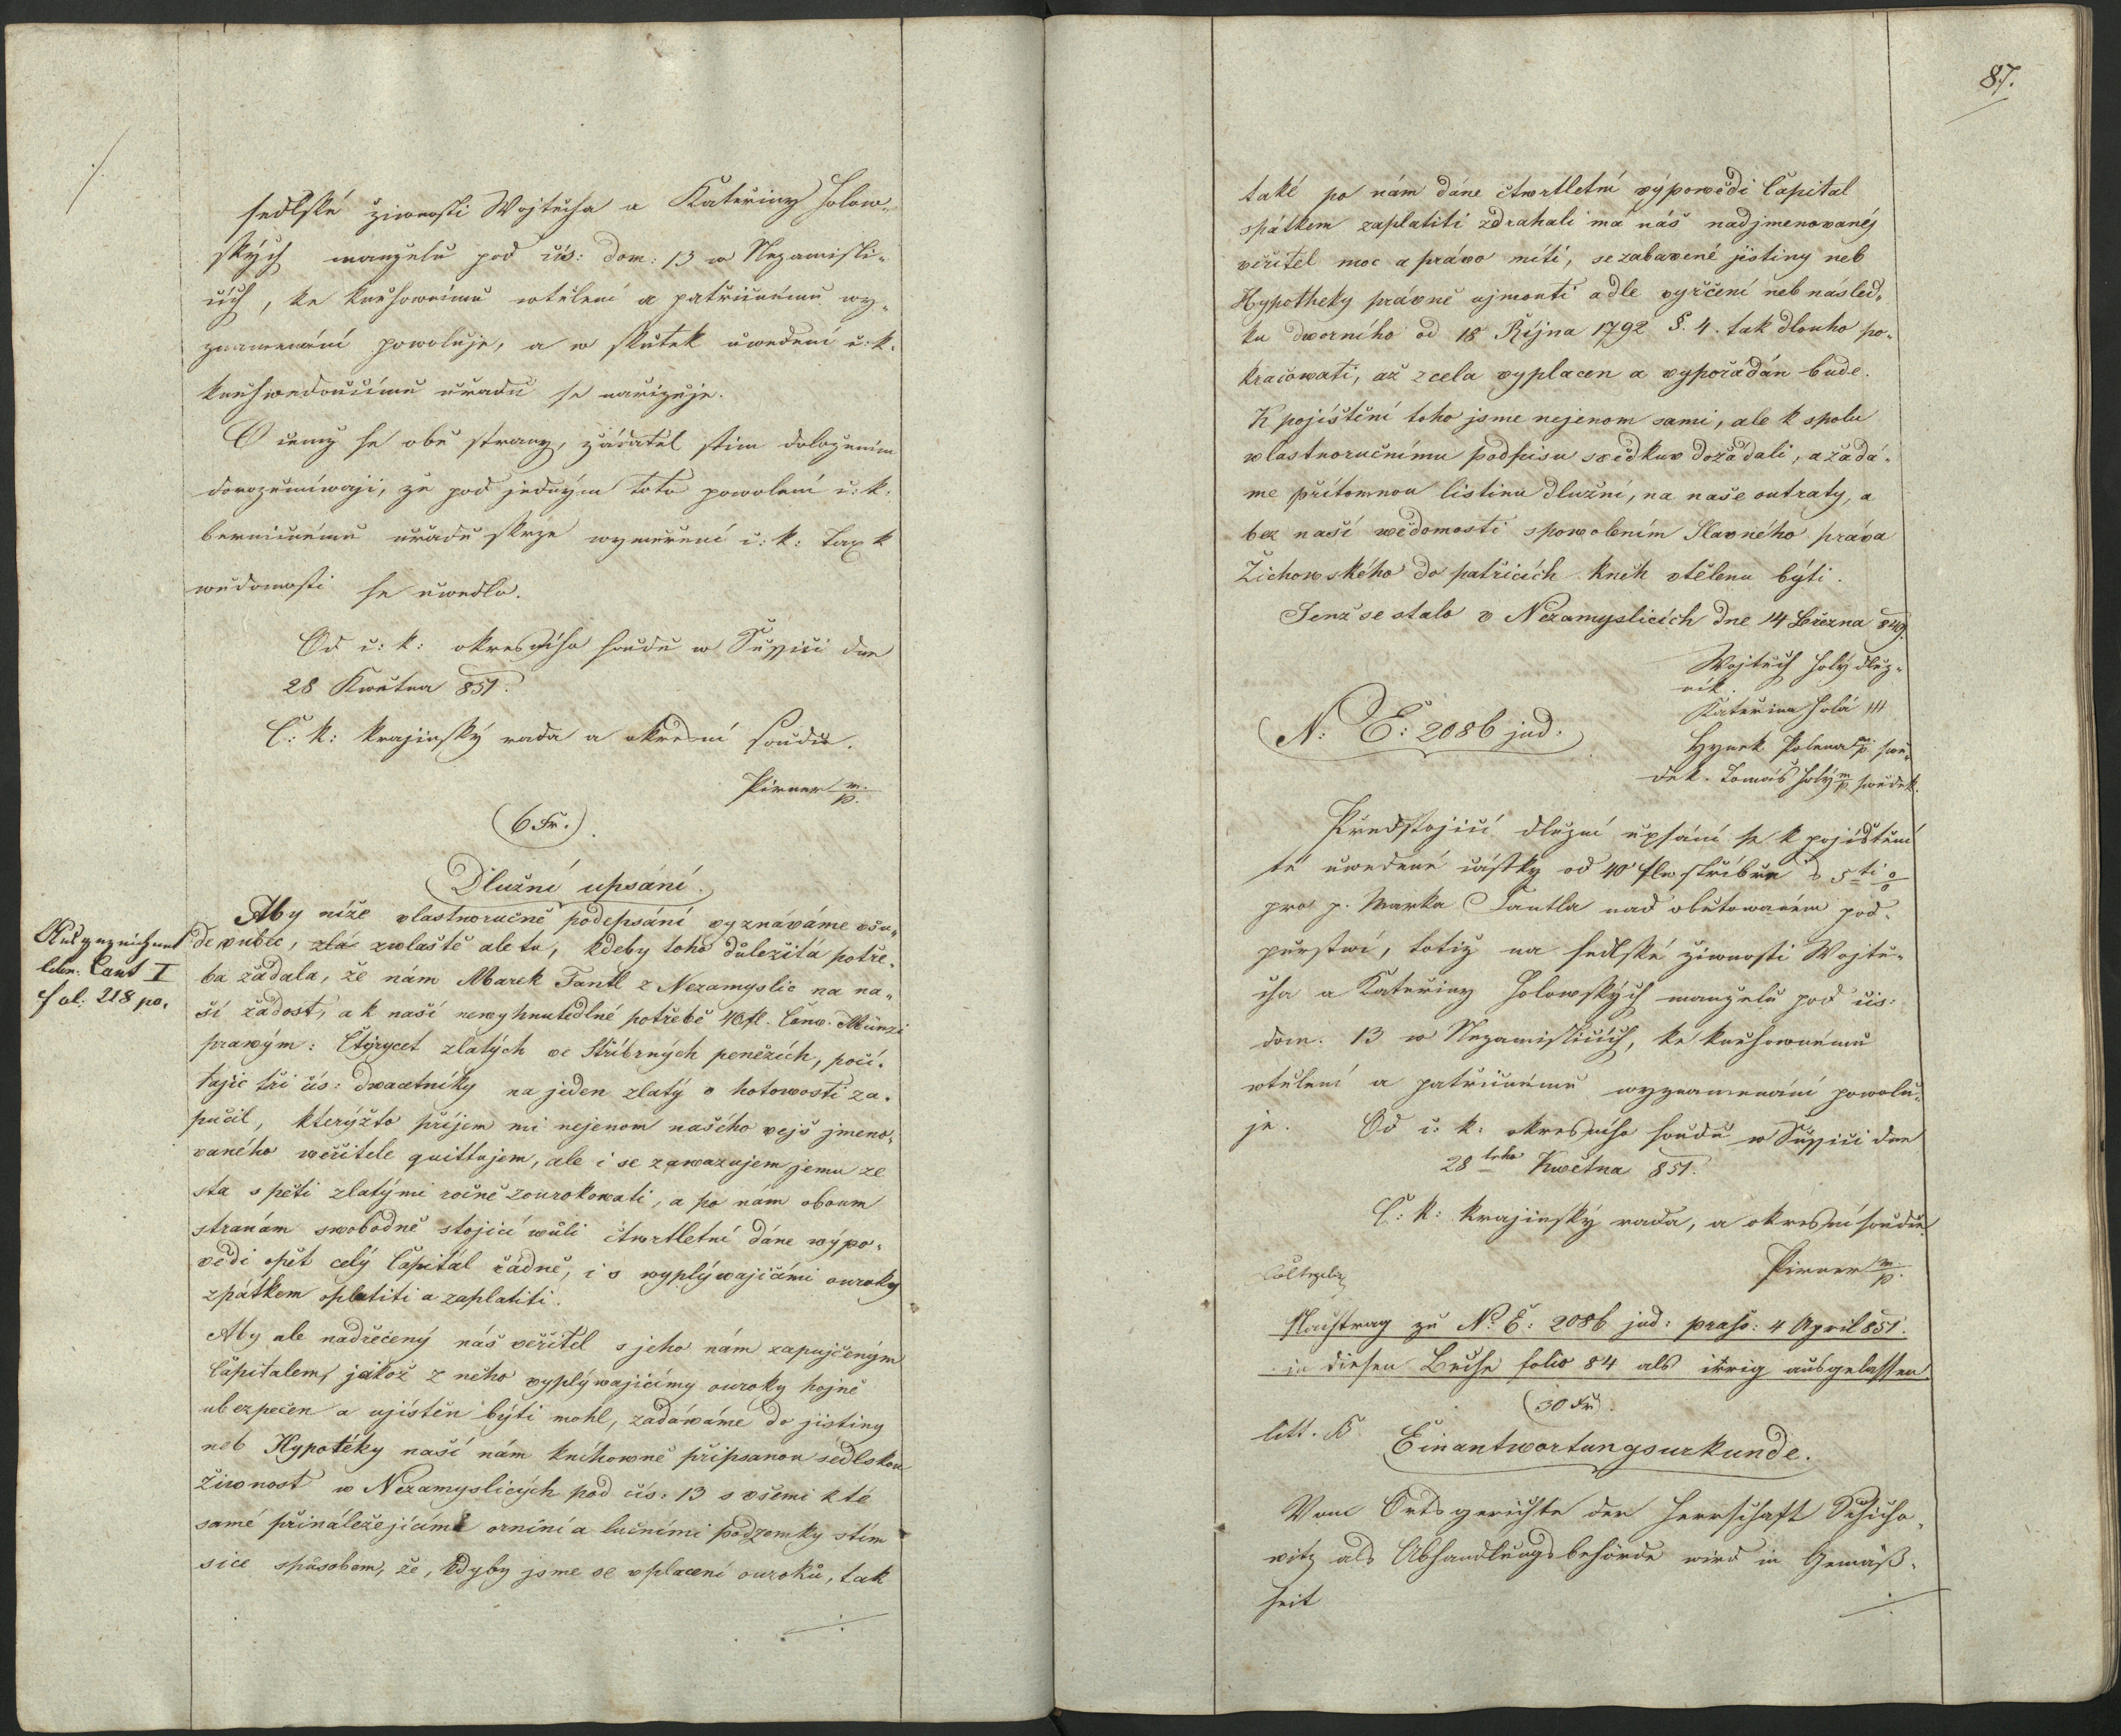 sedlské ziwnosti Wojtěcha a Kateřiny Holow„
ských manzelu pod čís: dom: 13 w Nezamisli„
cích, ke knihownímu wtělení a patřičnému wy„
znamenání powoluje, a w skutek uwedení c: k.
knihwedoucímu uřadu se narizuje.
O čemz se obě strany, zádatel stím doložením
dorozumíwaji, že pod jedným toto powolení c: k:
berničnému uřadu skrze wyměření c: k: Tax k
wědomosti se uwedlo.
Od c: k: okresního soudu w Sušici dne
28 Kwětna 851.
C: k: krajinský rada a okresní soudce.
Pirner m/p.
(6 Fr.)
Dlužní upsání.
Aby níže vlastnoručně podepsání vyznáváme všu„
de vubec, zlá zwlaště ale tu, kdeby toho důležitá potře„
ba žádala, že nám Marek Fantl z Nezamyslic na na„
ší žádost, a k naší newyhnutedlné potřebě 40 fl. Conv. Münzi
prawým: Čtyrycet zlatých ve Stříbrných penězích, počí„
tajíc tři čís: dwacetníky na jeden zlatý v hotowosti za„
pučil, kterýžto příjem mi nejenom našého vejš jmeno„
vaného wěřitele quittujem, ale i se zawazujem jemu ze
sta s pěti zlatými ročně zourokowati, a po nám oboum
stranám swobodně stojící wůli čtwrtletní dáne wýpo„
vědi opět celý Capitál řádně, i s wyplýwajícámi ouroky
zpátkem oplatiti a zaplatiti.
Aby ale nadřečený náš veřitel s jeho nám zapujčeným
Capitalem, jakož z něho vyplýwajícímy ouroky hojně
ubezpečen a ujištěn býti mohl, zadáwáme do jistiny
neb Hypotéky naší nám knihowně připsanou sedlskou
Žiwnost w Nezamyslicých pod čís: 13 s všemi k té
samé přináležejícámi orníní a lučními podzemky stím
sice spůsobem, že, kdyby jsme se vplacení ouroků, tak
lchn. Cant I
fol. 218 po.
87.
také po nám dáne čtwrtletní výpowědi Capital
spátkem zaplatiti zdrahali má náš nadjmenovanéj
věřitel moc a právo míti, se zabavené jistiny neb
Hypotheky právně ujmonti a dle vyrčení neb násled„
ku dworního od 18 Října 1792 §. 4. tak dlouho po„
kračowati, až zcela vyplacen a vypořádán bude.
K pojištění toho jsme nejenom sami, ale k spolu
wlastnoručnímu podpisu swědkuv dožádali, a žádá„
me přítomnou listinu dlužní, na naše outraty, a
bez naší wědomosti spowolením Slavného práva
Žichowského do patřicích kněh vtělenu býti.
Jenž se stalo v Nezamyslicích dne 14 Března 849.
Wojtěch Holý dluz„
ník.
Kateřina Holá III
Hynek Polena m/p. swě„
dek. Tomáš Holý m/p swědek.
N: E: 2086 jud.
Předstojicí dluzní upsání se k pojistění
té uwedené částky od 40 fl ve stříbře s 5ti %
pro p. Marka Fantla nad obětowaném pod„
purstwí, totiz na sedlské ziwnosti Wojtě„
cha a Kateřiny Holowských manzelu pod čís:
dom. 13 w Nezamislicích, ke knihownímu
wtělení a patřičnému wyznamenání powolu„
je. Od c: k: okresního soudu w Sušici dne
28tcho Kwětna 851.
C: k: krajinský rada, a okresní soudce
Pirner m/p.
Nachtrag zu No. E: 2086 jud: praes: 4 April 851.
in diesen Buche folio 84 als irrig ausgelassen.
(30 Fr).
litt. B Einantwortungsurkunde.
Vom Ortsgerichte der Herrschaft Schicho„
witz als Abhandlungsbehörde wird in Gemäß„
heit